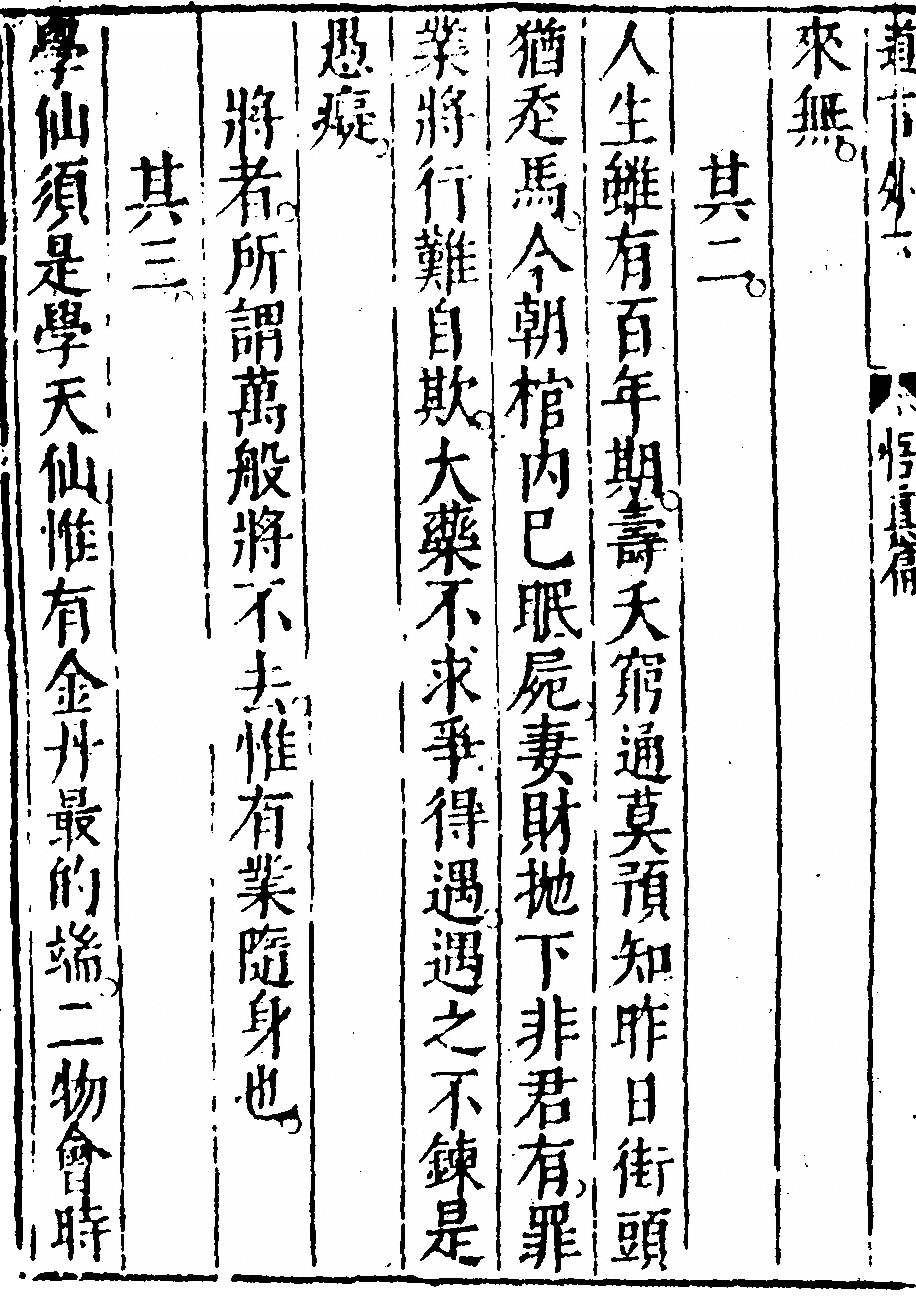 悟真篇
來無。
其二。
人生雖有百年期。壽夭窮通莫預知昨日街頭
猶走馬。今朝棺内已眠屍。妻財拋下非君有。罪
業將行難自欺。大藥不求爭得遇。遇之不鍊是
愚癡。
將者。所謂萬般將不去。惟有業隨身也。
其三。
學仙須是學天仙惟有金丹最的端。二物會時